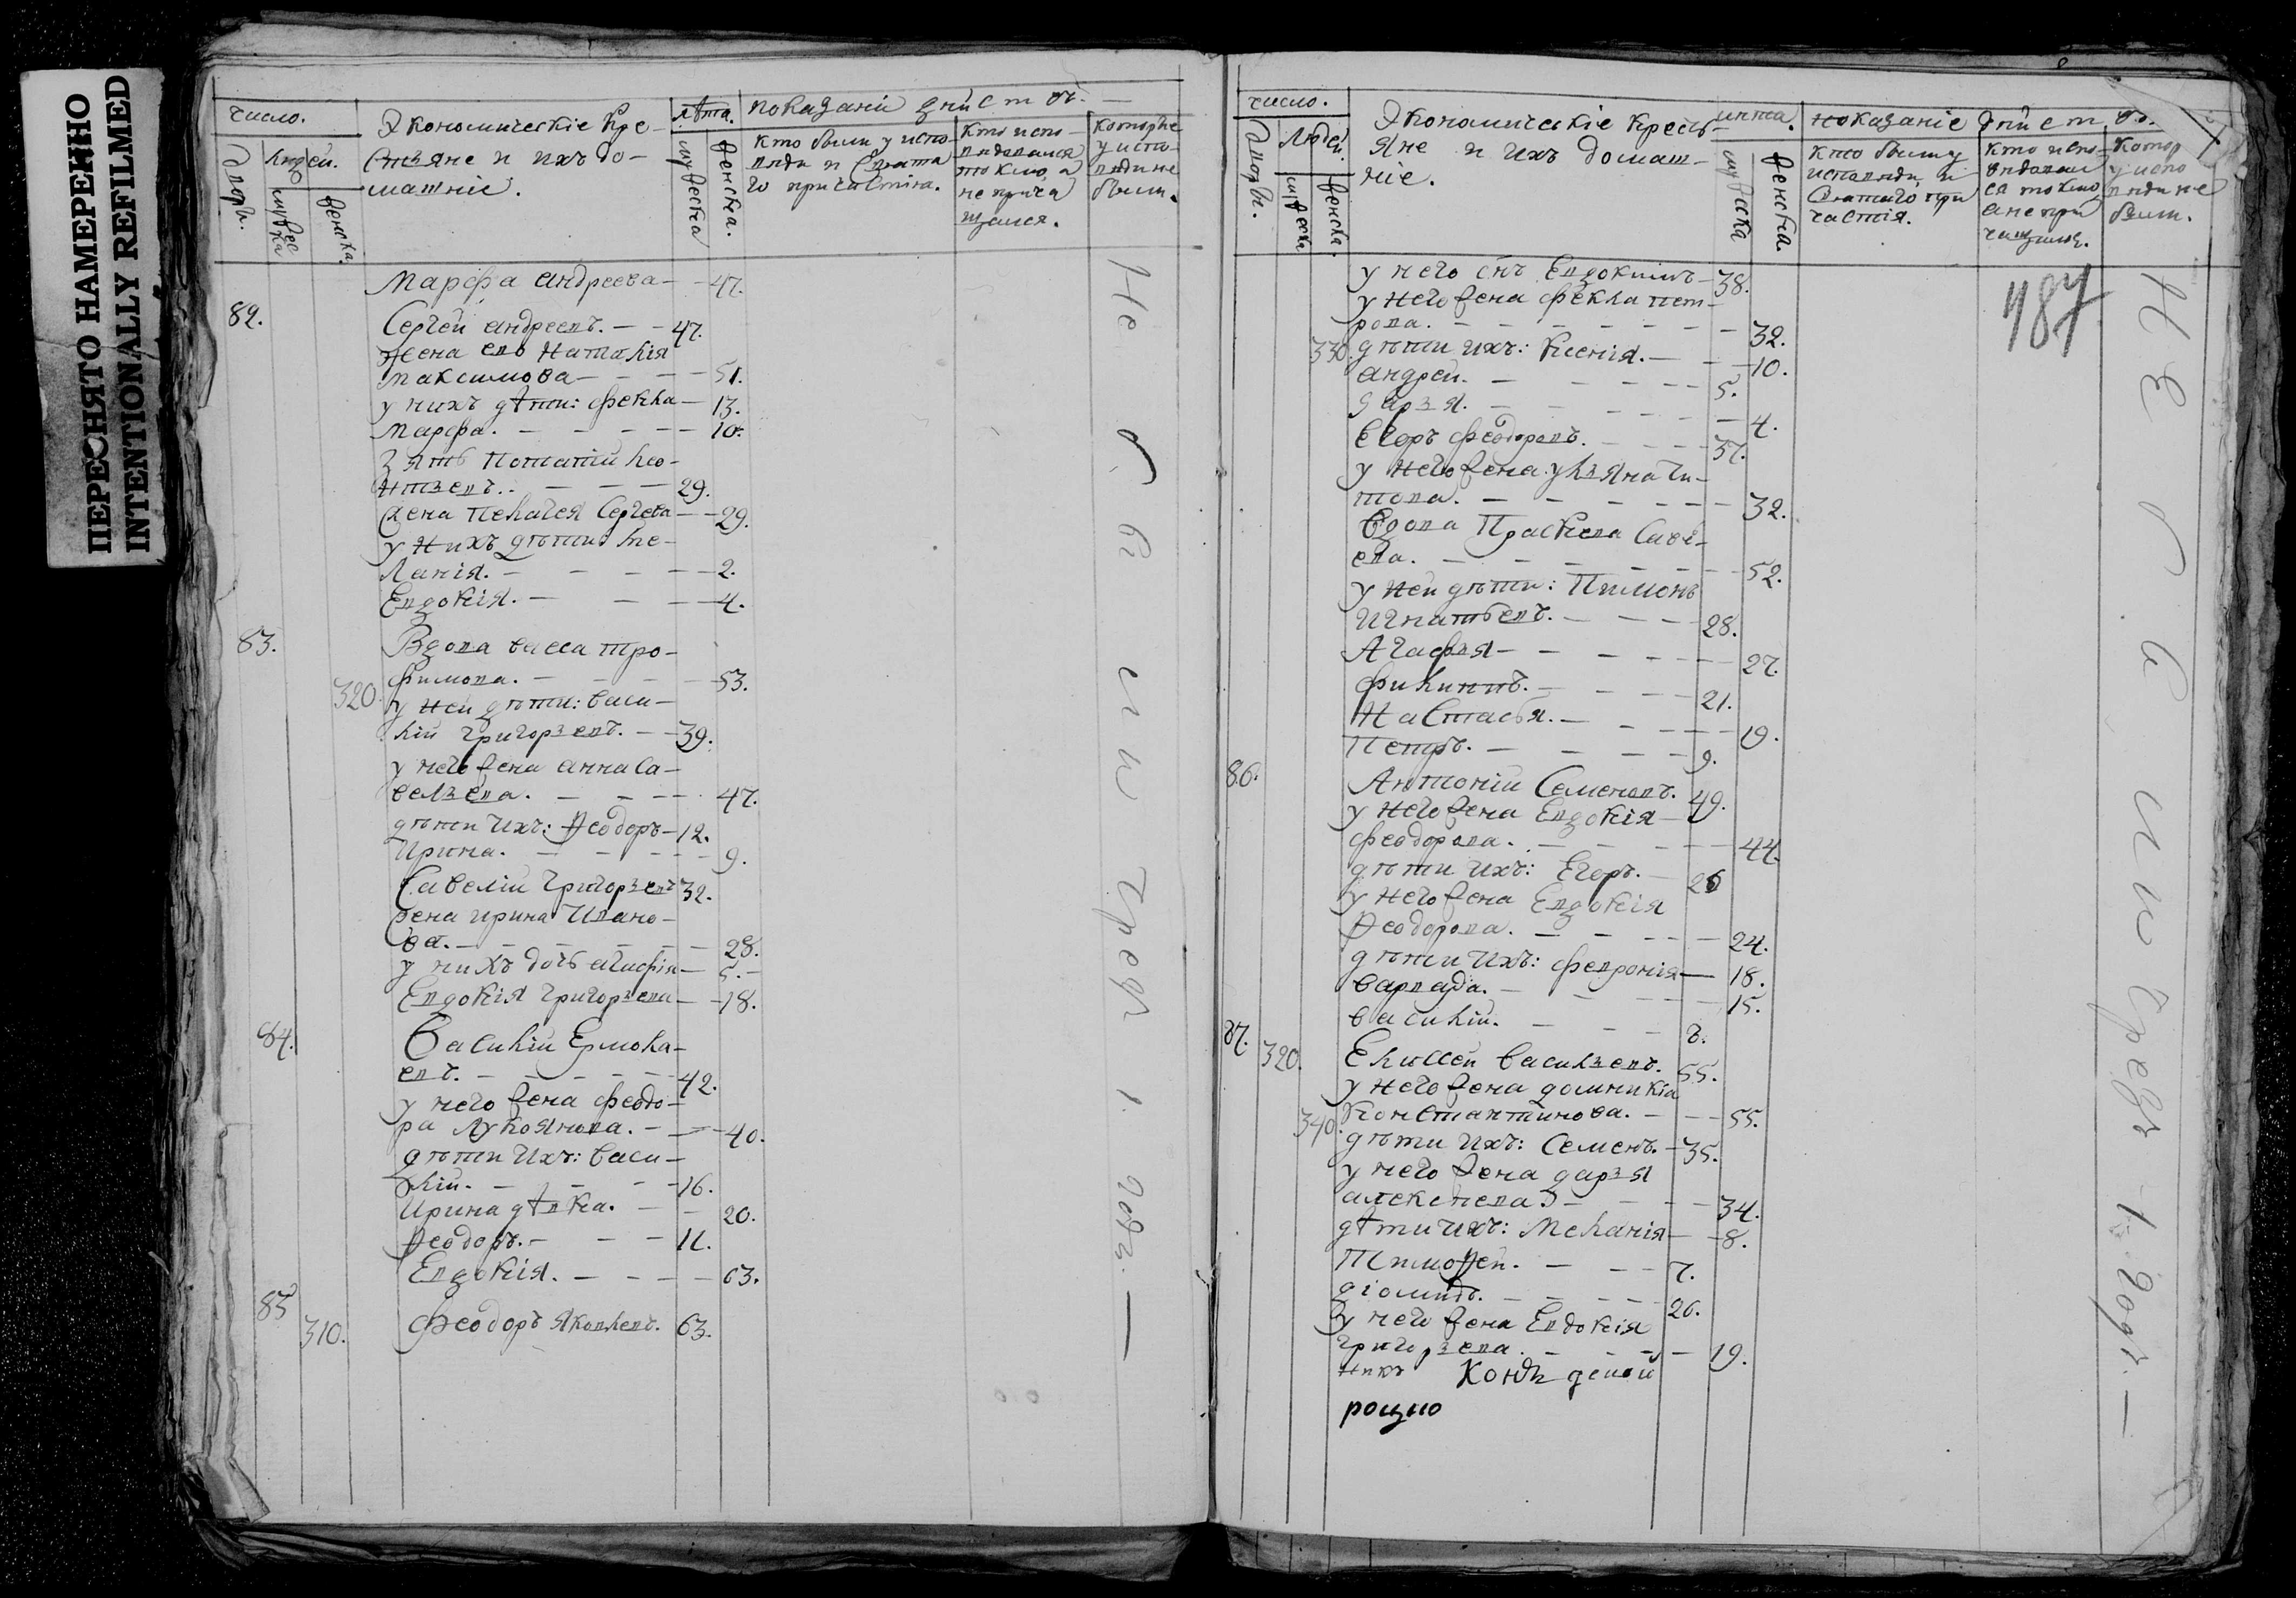 ПЕРЕСНЯТО НАМЕРЕННО
INTENTIONALLY REFILMED
число.
Экономическіе кре-
стьяне и ихъ до-
машніе.
лѣта.
показаніи действъ.
дворы.
людей.
мужеска
женска.
мужеска
женска.
кто были у испо-
веди и свята
го причастіа.
кто испо-
ведовался
токмо, а
не прича
щался.
которые
у испо-
веди не
были.
Марфа андреева — 47.
82.
Сергей андреевъ. — 47.
жена его Наталія
максимова — 51.
у нихъ дѣти: фекла — 13.
Марфа. — 10.
зять Потапій лео-
нтьевъ. — 29.
жена Пелагея Сергева — 29.
у нихъ дѣти: ме-
ланія. — 2.
Евдокія. — 4.
83.
Вдова васса тро-
фимова. — 53.
320.
у ней дѣти: васи-
лій григорьевъ. — 39.
у него жена анна са-
вельева. — 47.
дѣти ихъ: Феодоръ — 12.
Ирина. — 9.
Савелій григорьевъ 32.
жена ирина Ивано-
ва. — 28.
у нихъ дочь агафія — 5. —
Евдокія григорьева — 18.
84.
Василій Ермола-
евъ. — 42.
у него жена феодо-
ра Лукоянова. — 40.
дѣти ихъ: васи-
лій. — 16.
Ирина дѣвка. — 20.
Феодоръ. — 11.
Евдокія. — 63.
85
310.
Феодоръ яковлевъ. 63.
Не были чрез 1. годъ. —
число.
Экономическіе кресть-
яне и ихъ домаш-
ніе.
лѣта.
показаніе действъ.
дворы.
людей
мужеска
женска.
мужеска
женска.
кто были у
исповеди и
святаго при
частія.
кто испо-
ведовали
ся токмо
а не при
чащались.
котор
у испо
веди не
были.
487
у него снъ Евдокимъ — 38.
у него жена фекла пет-
рова. — 32.
330.
дѣти ихъ: Ксенія. — 10.
андрей. — 5.
дарья. — 4.
егоръ феодоровъ. — 37.
у него жена ульяна ти-
това. — 32.
вдова Прасковa Саве-
ева. — 52.
у ней дѣти: Пимонъ
Игнатьевъ. — 28.
Агафья — 27.
филиппъ. — 21.
Настасья. — 19.
Петръ. — 9.
86.
Антоній Семеновъ. 49.
у него жена Евдокія
феодорова. — 44.
дѣти ихъ: Егоръ. — 26
у него жена Евдокія
Феодорова. — 24.
дѣти ихъ: февронія — 18.
варвара. — 15.
василій. — 8.
87.
320.
Елиссей васильевъ. 55.
у него жена домникіа
340.
Константинова. — 55.
дѣти ихъ: Семенъ. — 35.
у него жена дарья
алексеева — 34.
дѣти ихъ: Меланія — 8.
Тимофей. — 7.
діомидъ. — 26.
у него жена Евдокія
григорьева. — 19.
рощию
Не были чрезъ 1. годъ. —